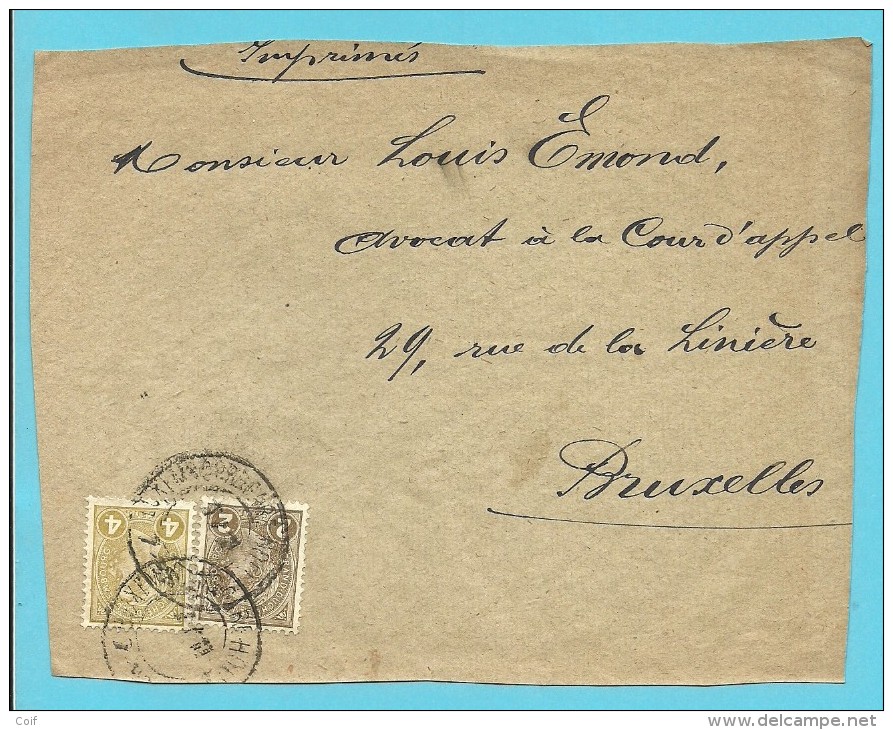 Imprimés
Monsieur Louis Émond,
Avocat à la Cour d'appel
29, rue de la Linière
Bruxelles
4 4
2 2
Coif
www.delcampe.net